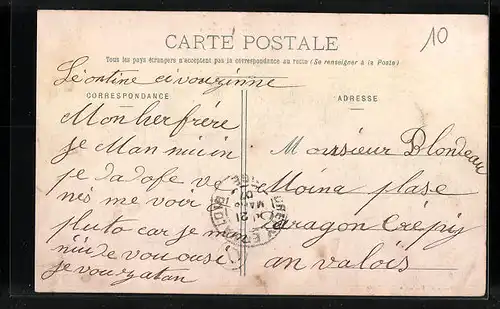 10
CARTE POSTALE
Tous les pays étrangers n'acceptent pas la correspondance au recto (Se renseigner à la Poste)
Léontine ci vouzinne
CORRESPONDANCE
Mon her frére
je Man nui in
je dadofe ve
nés me voir
pluto car je man
nui de vou ouse
je vou zatan
ADRESSE
Monsieur Blondeau
Moina plase
daragon Crépy
an valois
21
07
OISE